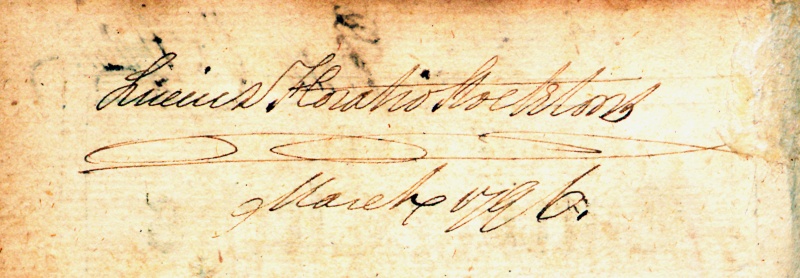 Lucius Horatio Stockton
March 1796.